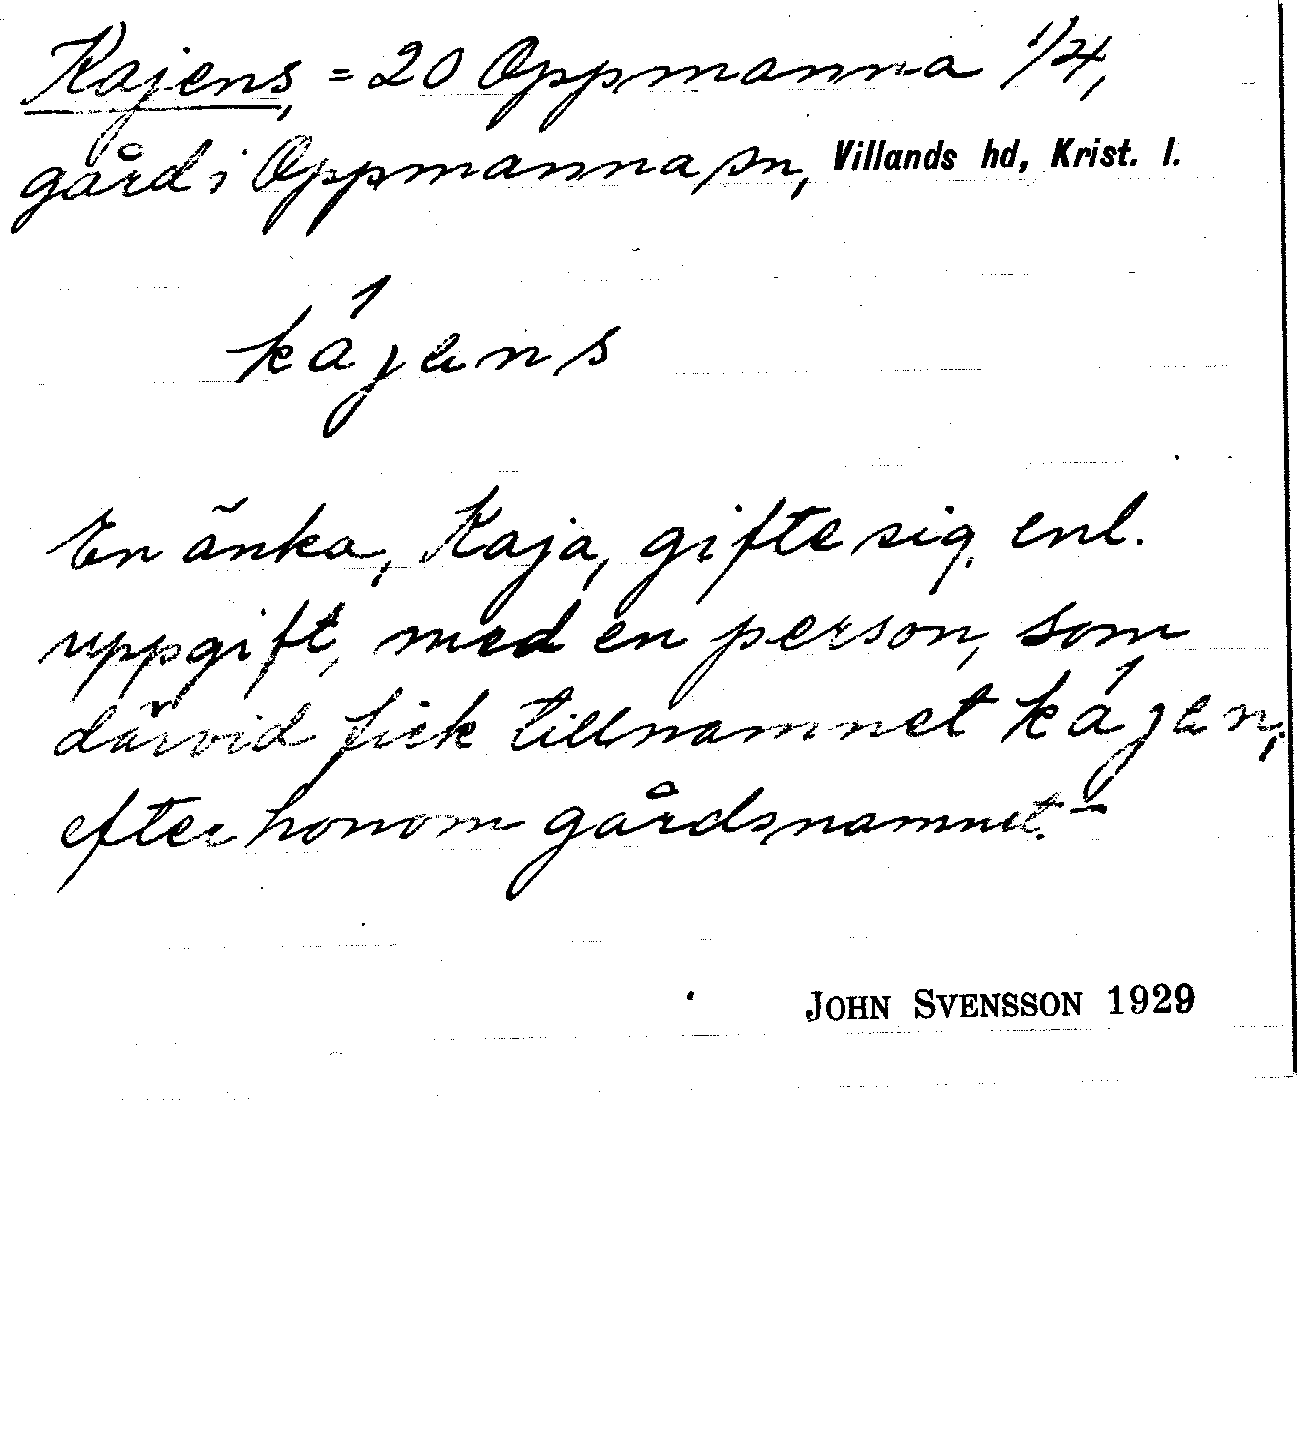 Kajens, = 20 Oppmanna 1/4,
gård i Oppmanna sn, Villands hd, Krist. l.
kájens
En änka, Kaja, gifte sig, enl.
uppgift, med en person, som
därvid fick tillnamnet kájen,
efter honom gårdsnamnet. –
JOHN SVENSSON 1929